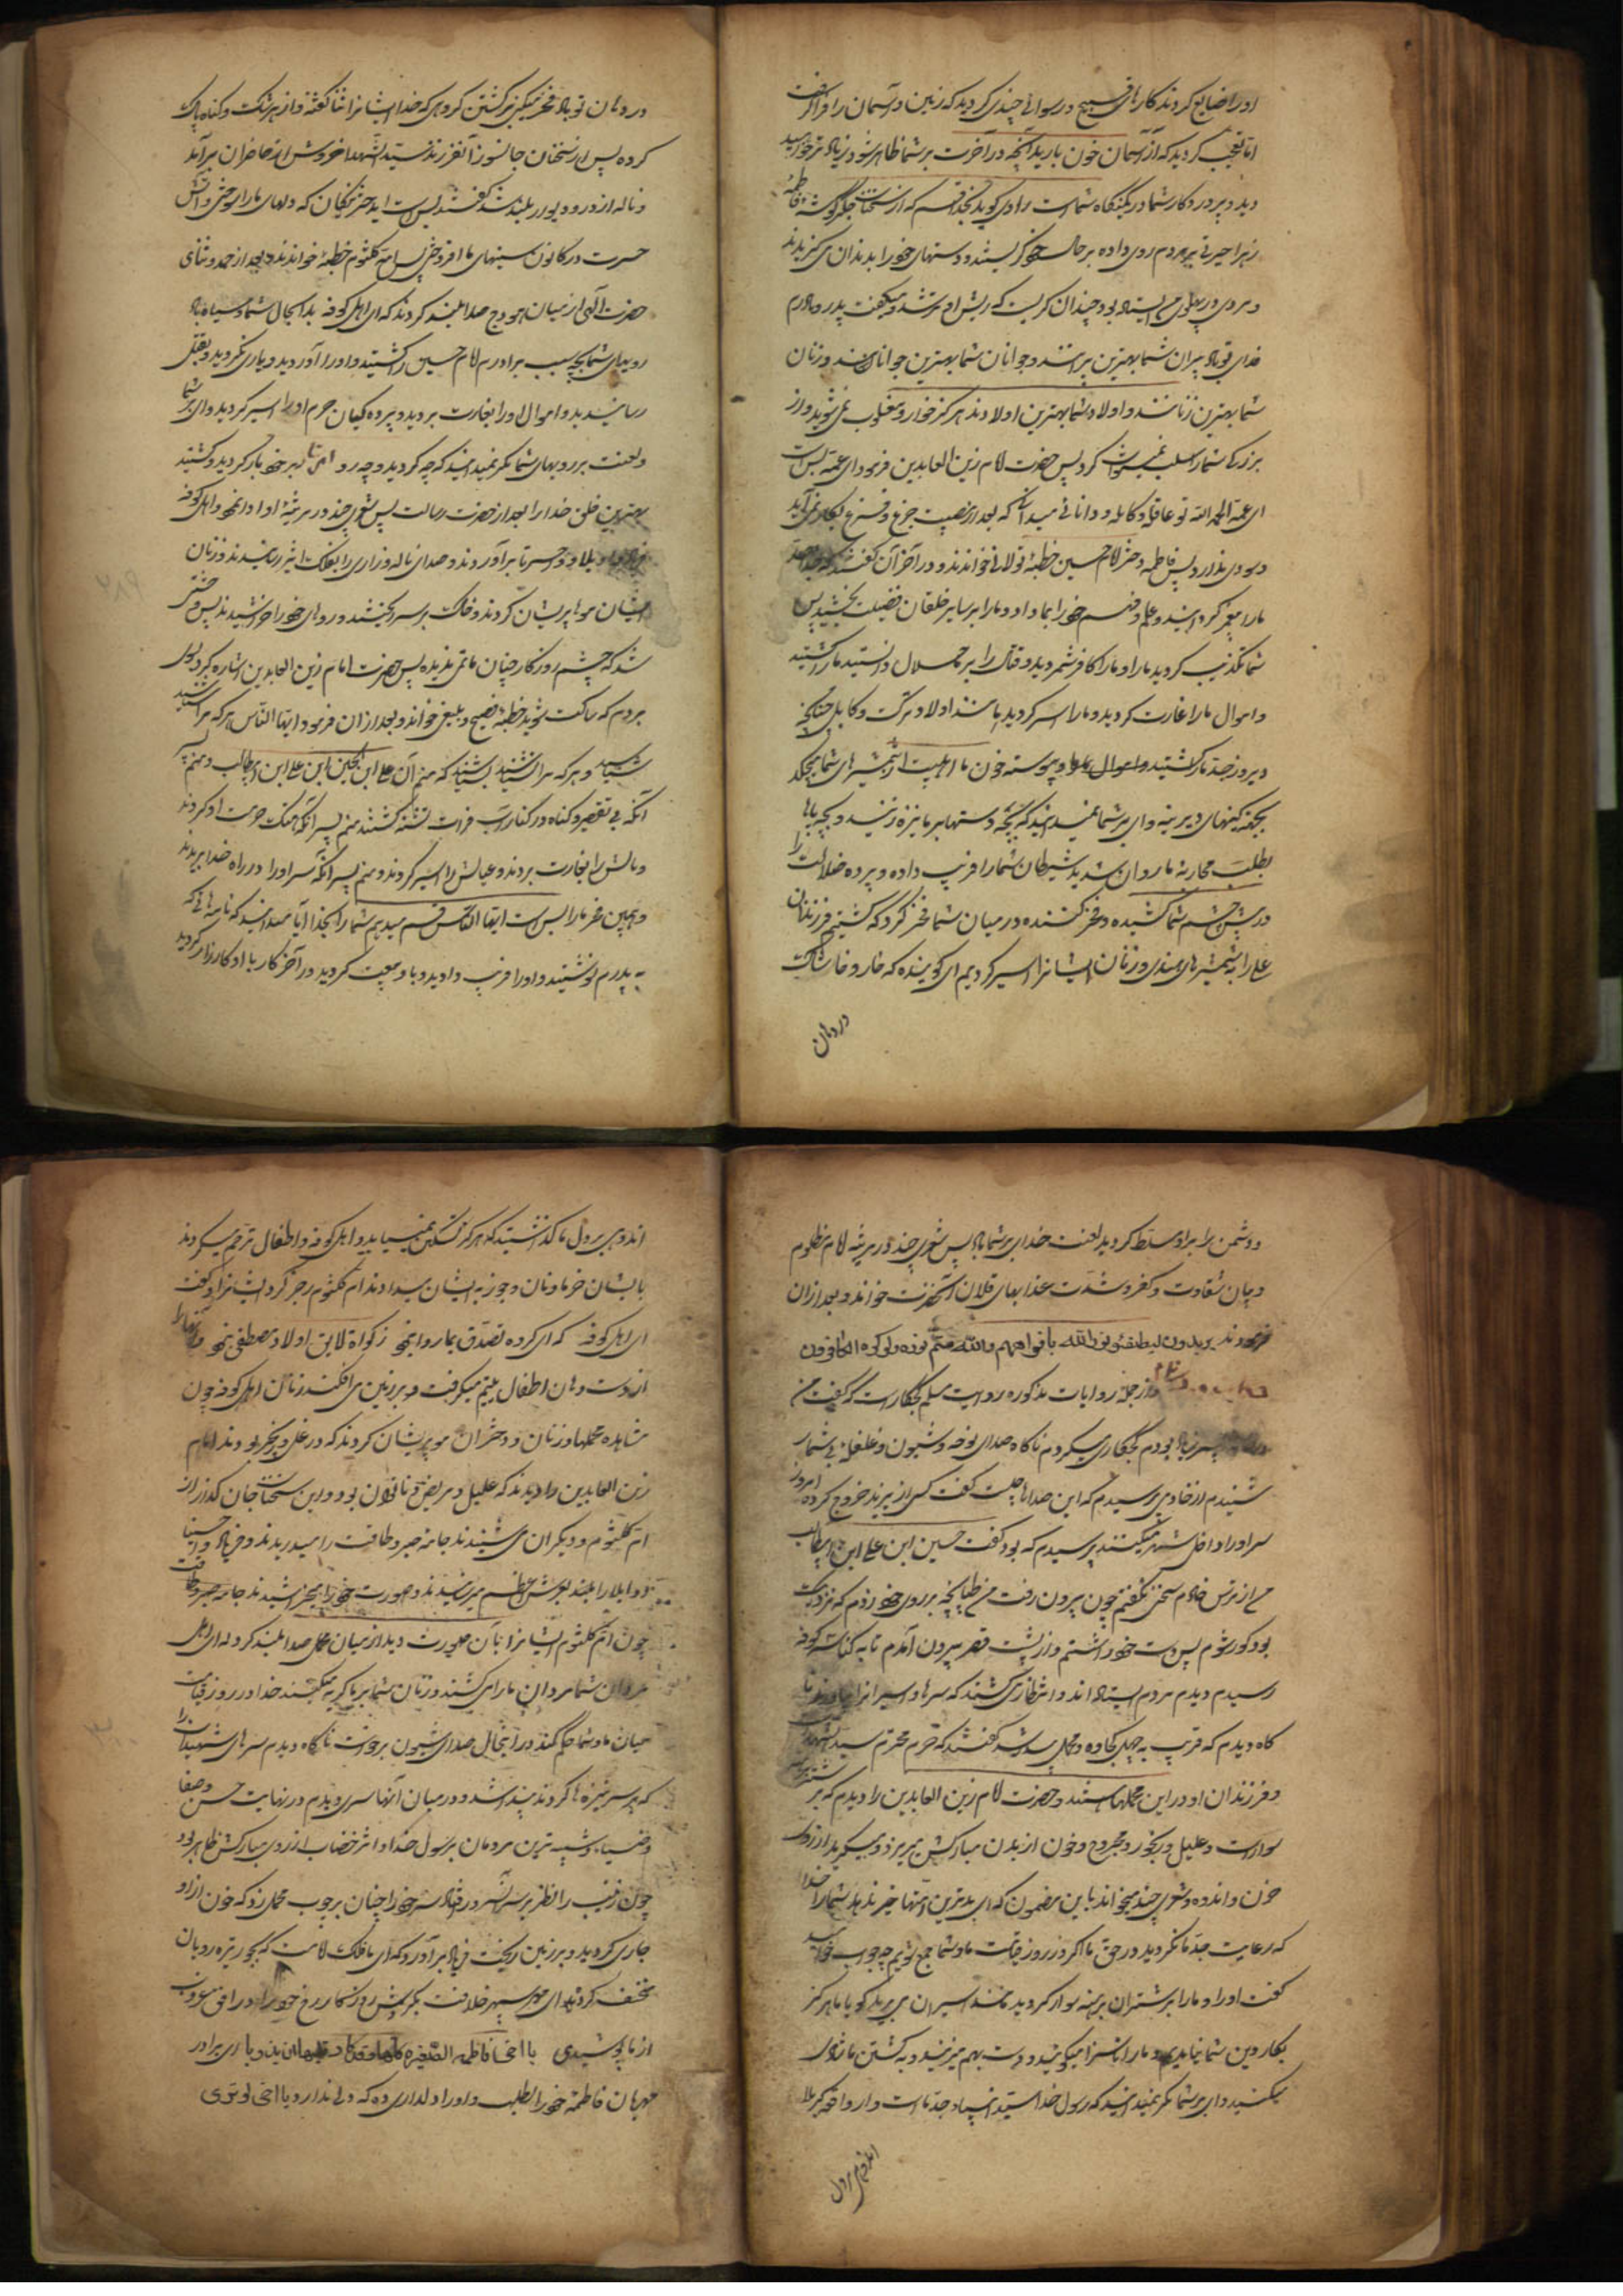 او را ضایع کردند کارهای قبیح و رسوائی چندی کردید که زمین و آسمان را فرا گرفت
ایا تعجب کردید که از آسمان خون بارید آنچه در آخرت بر شما ظاهر شود زیاده تر خواهید
دید و پروردگار شما در کمینگاه شماست راوی گوید بخدا قسم که از سخنان جگر گوشه فاطمه
زهرا حیرتی بر مردم روی داده بر حال خود گریستند و دستهای خود را بدندان می گزیدند
و مردی در پهلوی من ایستاده بود چندان گریست که ریش او تر شد و میگفت پدر و مادرم
فدای تو باد پیران شما بهترین پیرانند و جوانان شما بهترین جوانان اند و زنان
شما بهترین زنانند و اولاد شما بهترین اولادند هرگز خوار و مغلوب نمی شوید و از
بزرگی شما را سلب نمیتوان کرد پس حضرت امام زین العابدین فرمود ای عمه بس است
ای عمه الحمد الله تو عاقله و کامله و دانائی میدانی که بعد از مصیبت جزع و فزع بکار نمی آید
و سودی ندارد پس فاطمه دختر امام حسین خطبهٔ طولانی خواندند و در آخر آن گفتند که
ما را گردانید و علم و فهم خود را بما داد و ما را بر سایر خلقان فضیلت بخشید پس
شما تکذیب کردید ما را و ما را کافر شمردید و قتال را بر ما حلال دانستید ما را کشتید
و اموال ما را غارت کردید و ما را اسیر کردید مانند اولاد ترک و کابل چنانچه
دیروز جد ما را کشتید و پیوسته خون ما اهلبیت از شمشیرهای شما میچکد
بجهة کینهای دیرینه وای بر شما نمیدانید که بچه دستها بر ما نیزه زنید و بچه پاها
بطلب محاربهٔ ما روان شدید شیطان شما را فریب داده و پرده ضلالت را
در پیش چشم شما کشیده و فخر کننده در میان شما فخر کرد که کشتیم فرزندان
علی را به شمشیرهای هندی و زنان ایشانرا اسیر کردیم ای گوینده که خار و خاشاک
در دهان
در دهان تو باد فخر میکنی بر کشتن گروهی که خدا ایشانرا ثنا گفته و از هر شک و گناه پاک
کرده پس از سخنان جانسوز آن فرزند سید الشهدا خروش از حاضران برآمد
و ناله از در و دیوار بلند شد گفتند بس است ای دختر پاکان که دلهای ما را سوختی و آتش
حسرت در کانون سینهای ما افروختی پس ام کلثوم خطبهٔ خواندند و بعد از حمد و ثنای
حضرت الهی از میان هودج صدا بلند کردند که ای اهل کوفه بدا بحال شما و سیاه باد
رویهای شما بچه سبب برادرم امام حسین را کشتید و او را آوردید و یاری نکردید و بقتل
رسانیدید و اموال او را بغارت بردید و پرده گیان حرم او را اسیر کردید وای بر شما
و لعنت بر رویهای شما مگر نمیدانید که چه کردید و چه بر خود بار کردید و کشتید
بهترین خلق خدا را بعد از حضرت رسالت پس شعری چند در مرثیهٔ او ادا نمود و اهل کوفه
واویلا و واحسرتا برآوردند و صدای ناله و زاری را بفلک اثیر رسانیدند و زنان
ایشان موها پریشان کردند و خاک بر سر ریختند و روهای خود را خراشیدند پس وحشتی
شد که چشم روزگار چنان ماتمی ندیده پس حضرت امام زین العابدین اشاره کرد بسوی
مردم که ساکت شوید خطبهٔ فصیح و بلیغی خواند و بعد از آن فرمود ایها الناس هر که مرا شناسد
شناسد و هر که مرا نشناسد بشناسد که منم آن علی ابن الحسین ابن علی ابن ابیطالب و منم پسر
آنکه بی تقصیر و گناه در کنار آب فرات تشنه کشتند منم پسر آنکه هتک حرمت او کردند
و مالش را بغارت بردند و عیالش را اسیر کردند و منم پسر آنکه سر او را در راه خدا بریدند
و همین فخر ما را بس است ایها الناس قسم میدهم شما را بخدا آیا میدانید که نامه هائی که
به پدرم نوشتید و او را فریب دادید و با او بیعت کردید در آخر کار با او کارزار کردید
و دشمن را بر او مسلط کردید لعنت خدای بر شما باد پس شعری چند در مرثیهٔ امام مظلوم
و بیان شقاوت و کفر و شدت عذابهای قاتلان آنحضرت خواند و بعد از آن
فرمودند یریدون لیطفئو نور الله بافواههم والله متم نوره ولو کره الکافرون
و از جمله روایات مذکوره روایت مسلم گچکار است که گفت من
بودم گچکاری میکردم ناگاه صدای نوحه و شیون و غلغلهٔ بی شمار
شنیدم از خادمی پرسیدم که این صداها چیست گفت کسی از یزید خروج کرده امروز
سر او را داخل شهر میکنند پرسیدم که بود گفت حسین ابن علی ابن ابیطالب
من از ترس خادم سخن نگفتم چون بیرون رفت من طپانچه بر روی خود زدم که نزدیک
بود کور شوم پس دست خود را شستم و از پشت قصر بیرون آمدم تا به کناسهٔ کوفه
رسیدم دیدم مردم ایستاده اند و انتظار می کشند که سرها و اسیرانرا بیاورند نا
گاه دیدم که قریب به چهل کجاوه و محمل پیدا شد گفتند که حرم محترم سید الشهدا
و فرزندان او در این محملها هستند و حضرت امام زین العابدین را دیدم که بر شتر
سوار است و علیل و رنجور و مجروح و خون از بدن مبارکش میریزد و میگرید از روی
حزن و اندوه و شعری چند میخواند باین مضمون که ای بدترین امتها خیر ندهد شما را خدا
که رعایت جد ما نکردید در حق ما اگر در روز قیامت ما و شما جمع شویم چه جواب خواهید
گفت او را و ما را بر شتران برهنه سوار کردید مانند اسیران می برید گویا ما هرگز
بکار دین شما نیامدیم و ما را ناسزا میگوئید و دست بهم میزنید و به کشتن ما شادی
میکنید وای بر شما مگر نمیدانید که رسول خدا سید انبیاء جد ماست و ای واقعه کربلا
اندوهی بر دل
اندوهی بر دل ما گذاشتید که هرگز تسکین نمییابد و اهل کوفه و اطفال ترحم میکردند
بایشان خرما و نان و جوز به ایشان میدادند ام کلثوم زجر کرد ایشانرا و گفت
ای اهل کوفه که ای گروه تصدق بما روا نبود زکواة لایق اولاد مصطفی نبود و آنها را
از دست و دهان اطفال یتیم میگرفت و بر زمین می افکند زنان اهل کوفه چون
مشاهده محملها و زنان و دختران مو پریشان کردند که در غل و زنجیر بودند امام
زین العابدین را دیدند که علیل و مریض و ناتوان بود و این سخنان جان گداز از
ام کلثوم و دیگران می شنیدند جامهٔ صبر و طاقت را میدریدند و فریاد واحسینا
و واویلا را بلند بعرش اعظم میرسانیدند و صورت خود را میخراشیدند جامه صبر و طاقت
چون ام کلثوم ایشانرا بآن صورت دید از میان محمل صدا بلند کرد که ای اهل
مردان شما مردان ما را می کشند و زنان شما بر ما گریه میکنند خدا در روز قیامت
میان ما و شما حکم کند در اینحال صدای شیون برخاست ناگاه دیدم سرهای شهیدان را
که بر سر نیزه ها کردند پیدا شد و در میان آنها سری دیدم در نهایت حسن و صفا
و ضیاء و شبیه ترین مردمان برسول خدا و اثر خضاب از روی مبارکش ظاهر بود
چون زینب را نظر بر سر آن سرور افتاد سر خود را چنان بر چوب محمل زد که خون از او
جاری گردید و بر زمین ریخت فریاد برآورد که ای ماه فلک امامت که بجور تیره رویان
منخسف گردیدی ای مهر سپهر خلافت بگردش روزگار رخ خود را در افق غروب
از ما پوشیدی یا اخی فاطمه الصغیره کلمها فقد کاد قلبها ان یذوب ای برادر
مهربان فاطمهٔ خود را بطلب و او را دلداری ده که دلی ندارد یا اخی لو تری